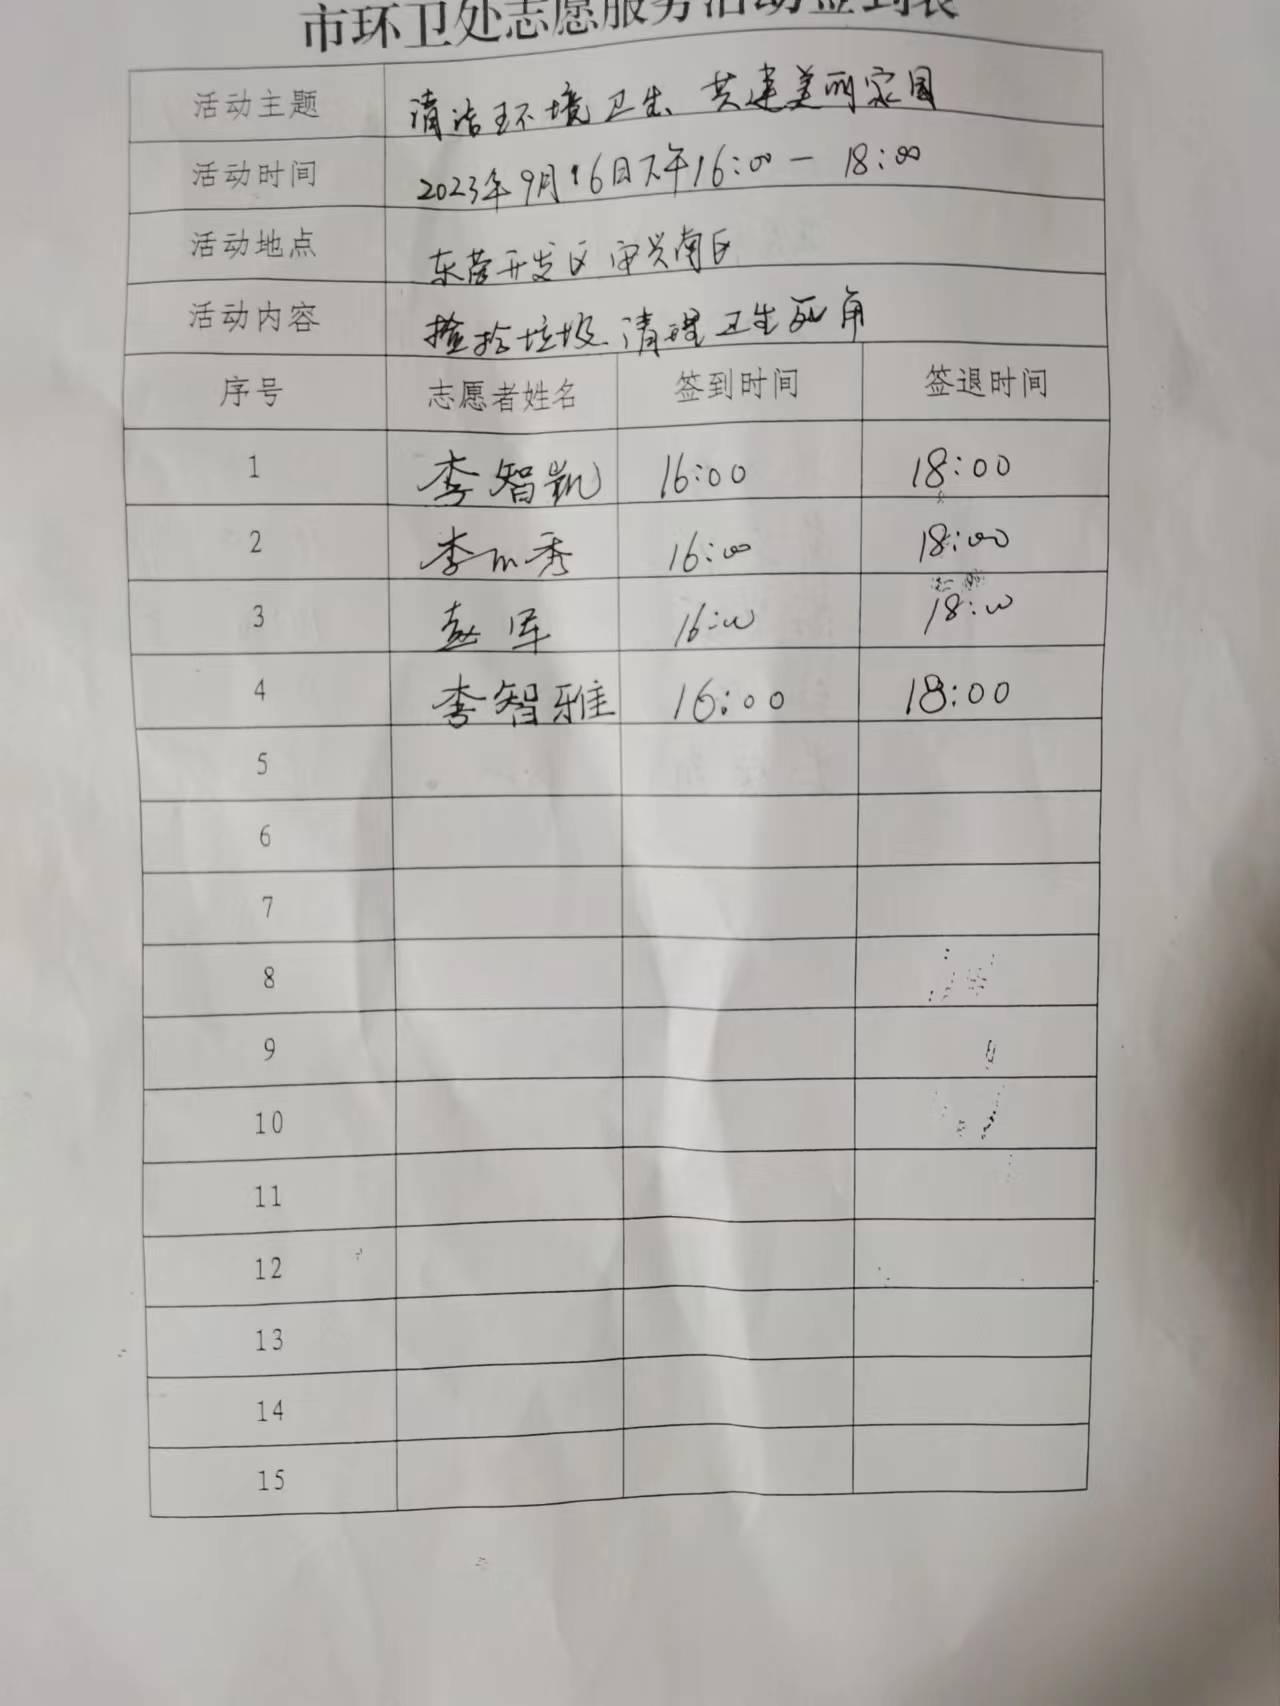 市环卫处志愿服务活动签到表
活动主题 清洁环境卫生、共建美丽家园
活动时间 2023年9月16日下午16:00一 18:00
活动地点 东营开发区 南区
活动内容 捡拾垃圾、清理卫生死角
序号 志愿者姓名 签到时间 签退时间
1 李智凯 16:00 18:00
2 李 秀 16:00 18:00
3 赵军 16:00 18:00
4 李智雅 16:00 18:00
5
6
7
8
9
10
11
12
13
14
15